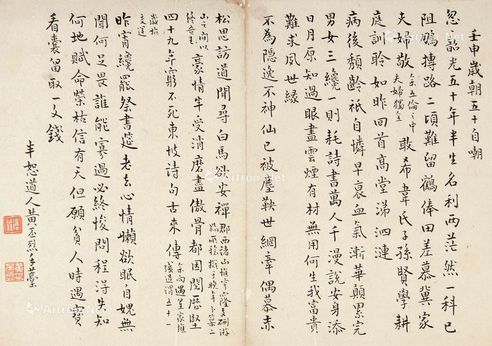 壬申歲朝五十自嘲
光五十年半生名利兩茫然一科已
阻鵬摶路二頃難留鶴俸田差慕冀家
夫婦敬余五倫之中夫婦獨全敢希韋氏子孫賢學耕
庭訓聆如昨回首高堂涕泗漣
病後頹齡祇自憐早衰血氣漸華顛累完
男女三纔一則耗詩書萬人千漫說安身添
日月原知過眼盡雲煙有材無用何生我富貴
難求夙世緣
不為隱逸不神仙已被塵鞅世網牽偶慕赤
松思訪道閒尋白馬欲安禪
豪情半受消磨盡傲骨都因閱歷堅
四十九年窮不死東坡詩句古來傳
昨宵纔罷祭書筵老去心情懶欲眠自愧無
聞何足畏誰能寡過必終程得失知
何地賦命榮枯信有天但願貧人時過
看囊留取一文錢
半恕道人黃丕烈手藁